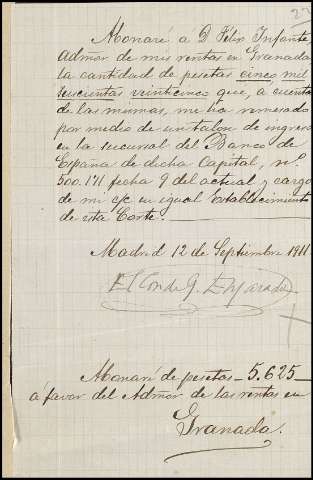 27
Abonaré a D. Felix Infante
Admor de mis rentas en Granada
la cantidad de pesetas cinco mil
seiscientas veinticinco que, a cuenta
de las mismas, me ha remesado
por medio de un talon de ingreso
en la sucursal del Banco de
España de dicha Capital, nº
500.171 fecha 9 del actual y cargo
de mi c/c en igual Establecimiento
de esta Corte.
Madrid 12 de Septiembre 1911
El Conde G.
Abonaré de pesetas 5.625
a favor del Admor de las rentas en
Granada.